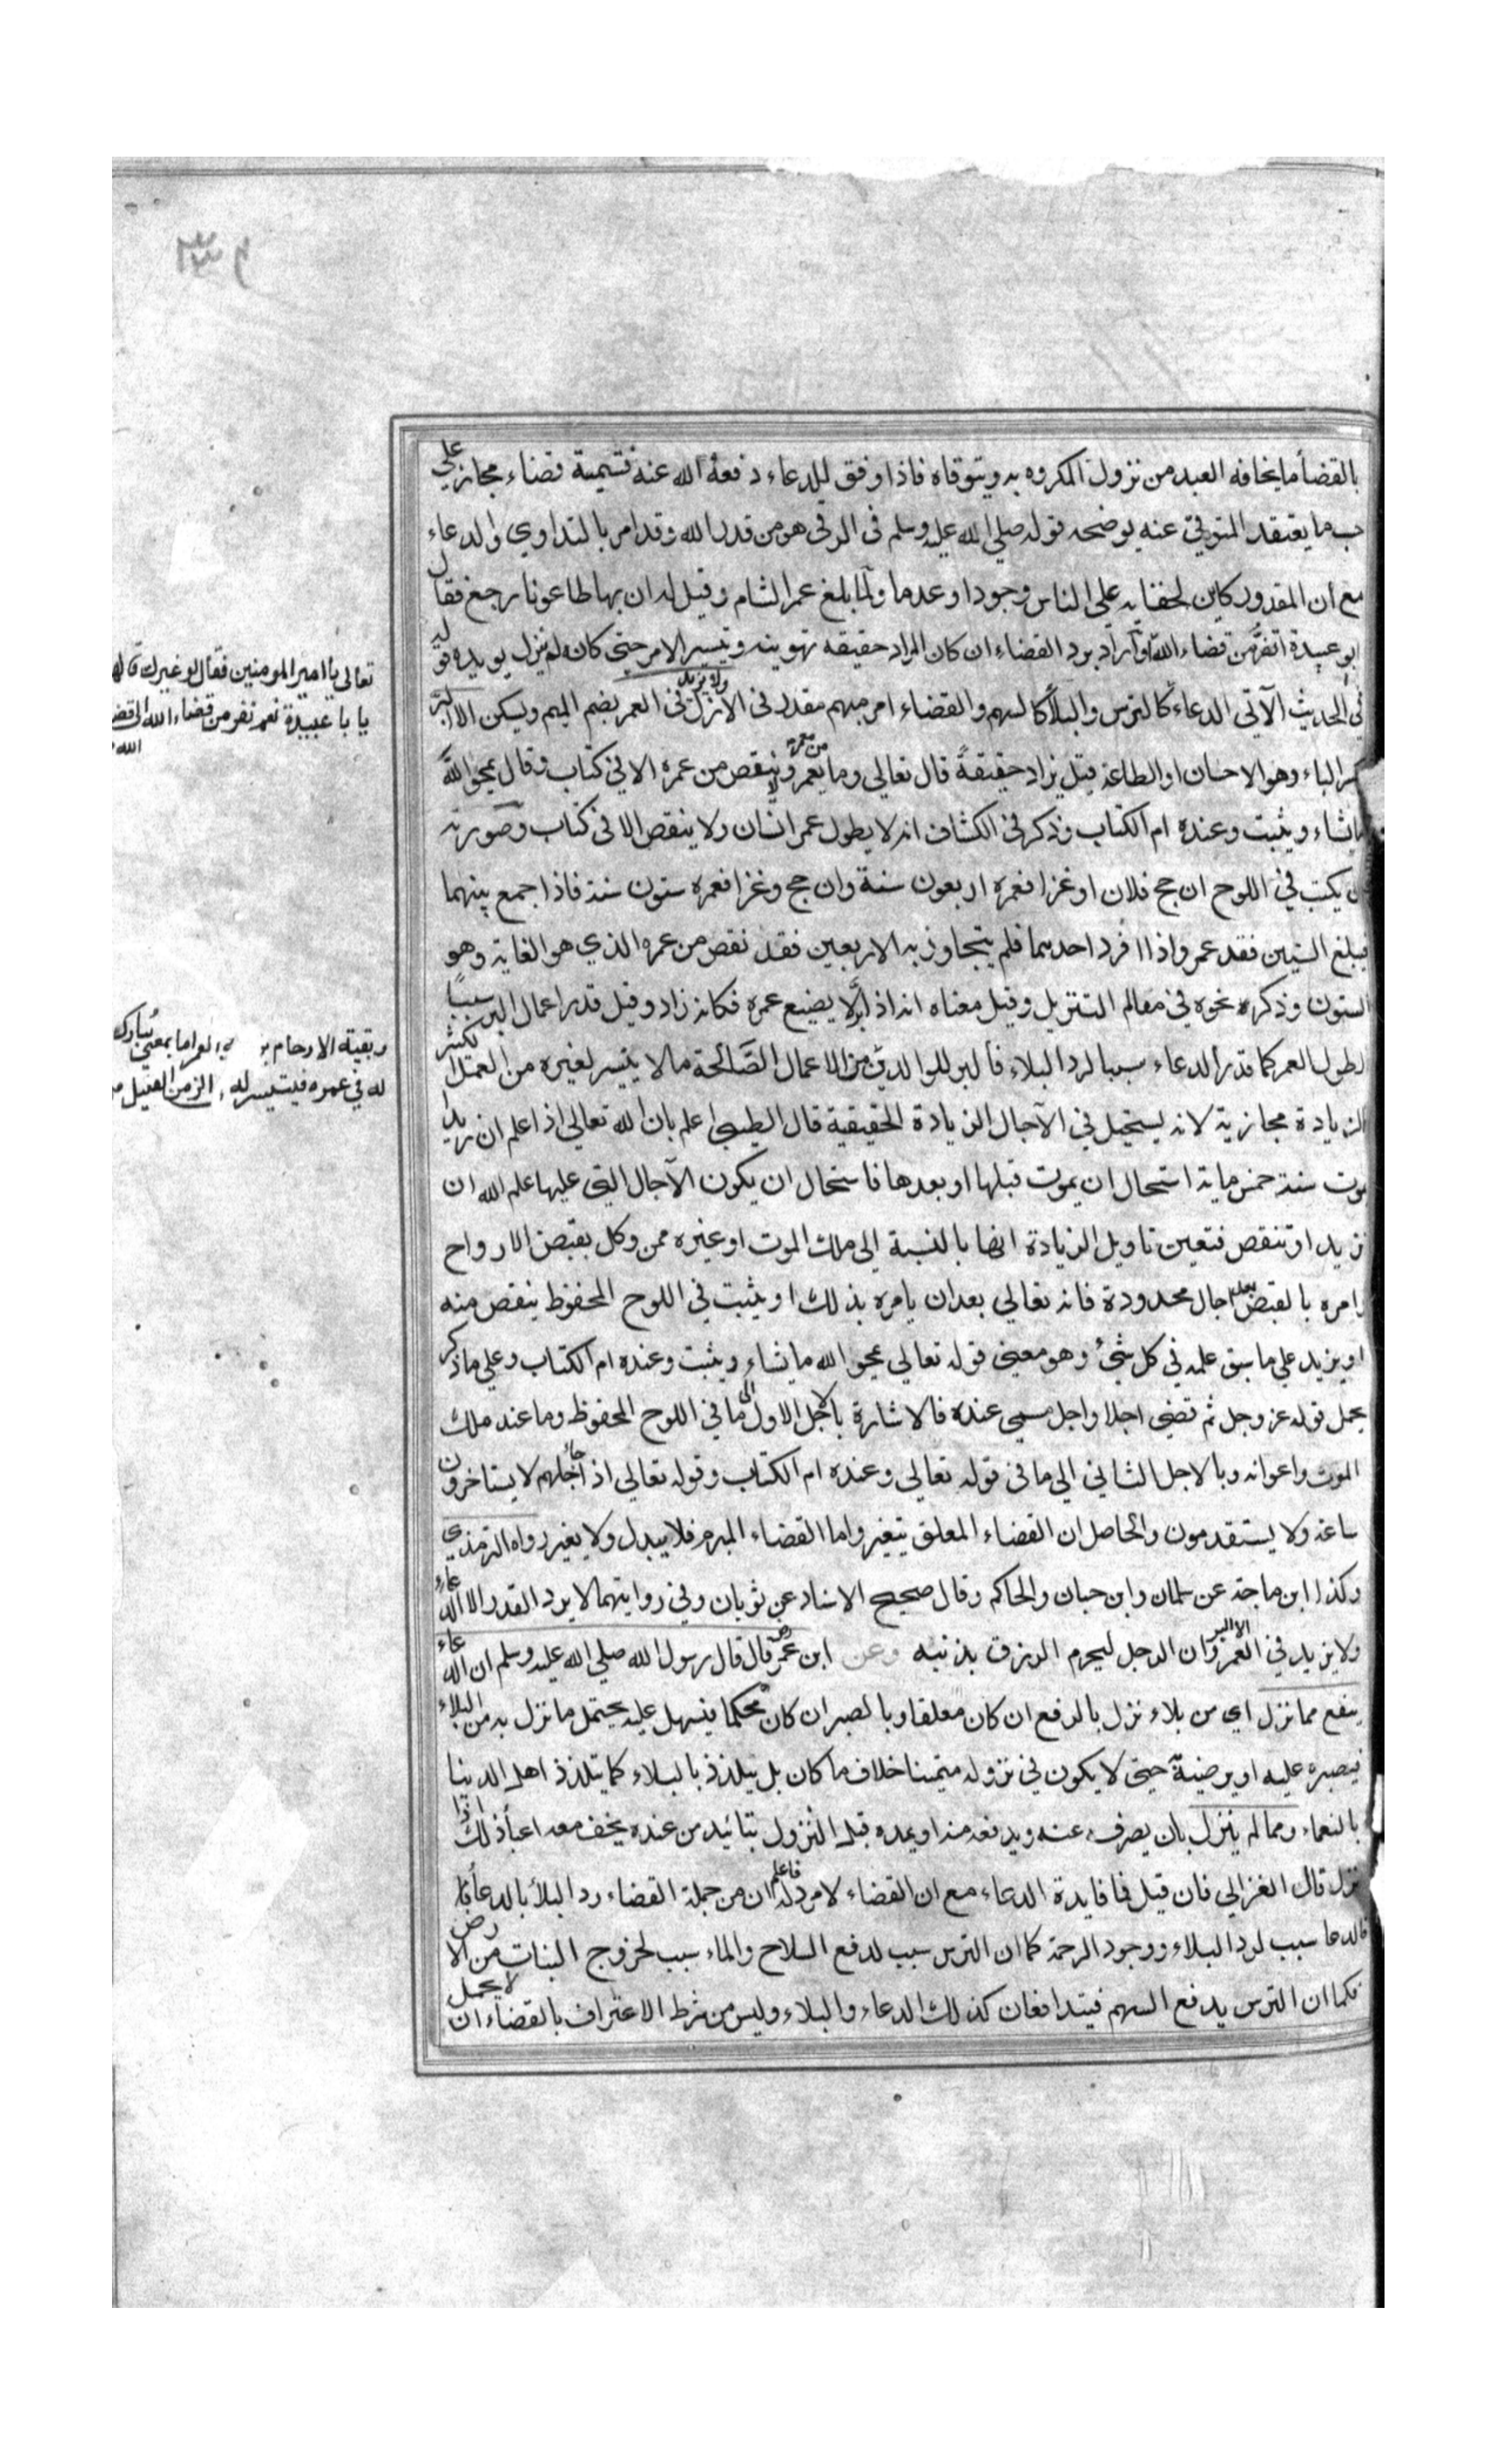 بالقضأ ما يخافه العبد من نزول المكروه به ويتوقاه فاذا وفق للدعاء دفعه الله عنه فتسمية قضاء مجاز علي
حسب ما يعتقد المتوقي عنه يوضحه قوله صلي الله عليه وسلم في الرقي هو من قدر الله وقد امر بالتداوي والدعاء
مع ان المقدور كاين لخفايه علي الناس وجودا وعدما ولما بلغ عمر الشام وقيل له ان بها طاعونا رجع فقال
ابو عبيدة اتفر من قضاء الله او اراد برد القضاء ان كان المراد حقيقه تهوينه وتيسير الامر حتي كانه لم ينزل يويده قوله
في الحديث الآتي الدعاء كالترس والبلأ كالسهم والقضاء امر مبهم مقدر في الازل ولا يزيد في العمر بضم الميم ويسكن الا البر
بكسر الباء وهو الاحسان او الطاعة قيل يزاد حقيقةً قال تعالي وما يعمر من معمر ولا ينقص من عمره الا في كتاب وقال يمحو الله
ما يشاء ويثبت وعنده ام الكتاب وذكر في الكشاف انه لا يطول عمر انسان ولا ينقص الا في كتاب وصورته
ان يكتب في اللوح ان حج فلان او غزا فعمره اربعون سنة وان حج وغزا فعمره ستون سنة فاذا جمع بينهما
فبلغ الستين فقد عمر واذا افرد احدهما فلم يتجاوز به الاربعين فقد نقص من عمره الذي هو الغاية وهو
الستون وذكره نحوه في معالم التنزيل وقيل معناه انه اذا بر لا يضيع عمره فكانه زاد وقيل قدر اعمال البر سببا
لطول العمر كما قدر الدعاء سببا لرد البلاء فالبر للوالدين من الاعمال الصالحة ما لا يتيسر لغيره من العمل الكثير
الزيادة مجازية لانه يستحيل في الآجال الزيادة الحقيقية قال الطيبي اعلم بان الله تعالي اذا علم ان زيدا
يموت سنة خمس ماية استحال ان يموت قبلها او بعدها فاستحال ان يكون الآجال التي عليها علم الله ان
تزيد او تنقص فتعين تاويل الزيادة انها بالنسبة الي ملك الموت او غيره ممن وكل بقبض الارواح
وامره بالقبض بعد اجال محدودة فانه تعالي بعد ان يامره بذلك او يثبت في اللوح المحفوظ ينقص منه
او يزيد علي ما سبق علمه في كل شيء وهو معني قوله تعالي يمحو الله ما يشاء ويثبت وعنده ام الكتاب وعلي ما ذكر
يحمل قوله عز وجل ثم قضي اجلا واجل مسمي عنده فالاشارة بالاجل الاول الي ما في اللوح المحفوظ وما عند ملك
الموت واعوانه وبالاجل الثاني الي ما في قوله تعالي وعنده ام الكتاب وقوله تعالي اذا جاء اجلهم لا يستاخرون
ساعة ولا يستقدمون والحاصل ان القضاء المعلق يتغير واما القضاء المبرم فلا يبدل ولا يغير رواه الترمذي
وكذا ابن ماجة عن سلمان وابن حبان والحاكم وقال صحيح الاسناد عن ثوبان وفي روايتهما لا يرد القدر الا الدعاء
ولا يزيد في العمر الا البر وان الرجل ليحرم الرزق بذنبه وعن ابن عمر رض قال قال رسول الله صلي الله عليه وسلم ان الدعاء
ينفع مما نزل اي من بلاء نزل بالدفع ان كان معلقا وبالصبر ان كان محكما فيسهل عليه يحتمل ما نزل به من البلاء
فيصبره عليه او يرضيه حتي لا يكون في نزوله متمنيا خلاف ما كان بل يتلذذ بالبلاء كما يتلذذ اهل الدنيا
بالنعماء ومما لم ينزل بان يصرفه عنه ويدفعه منه او يمده قبل النزول بتائيد من عنده يخف معه اعبأ ذلك اذا
نزل قال الغزالي فان قيل فما فايدة الدعاء مع ان القضاء لا مرد له فاعلم ان من جملة القضاء رد البلأ بالدعأ
فالدعا سبب لرد البلاء ووجود الرحمة كما ان الترس سبب لدفع السلاح والماء سبب لخروج النبات من الارض
فكما ان الترس يدفع السهم فيتدافعان كذلك الدعاء والبلاء وليس من شرط الاعتراف بالقضاء ان لا يحمل
تعالي يا امير المومنين فقال لو غيرك قالها
يا با عبيدة نعم نفر من قضاء الله الي قضاء
الله
وبقية الارحام العمر اما بمعني يبارك
له في عمره فيتيسر له الزمن القليل